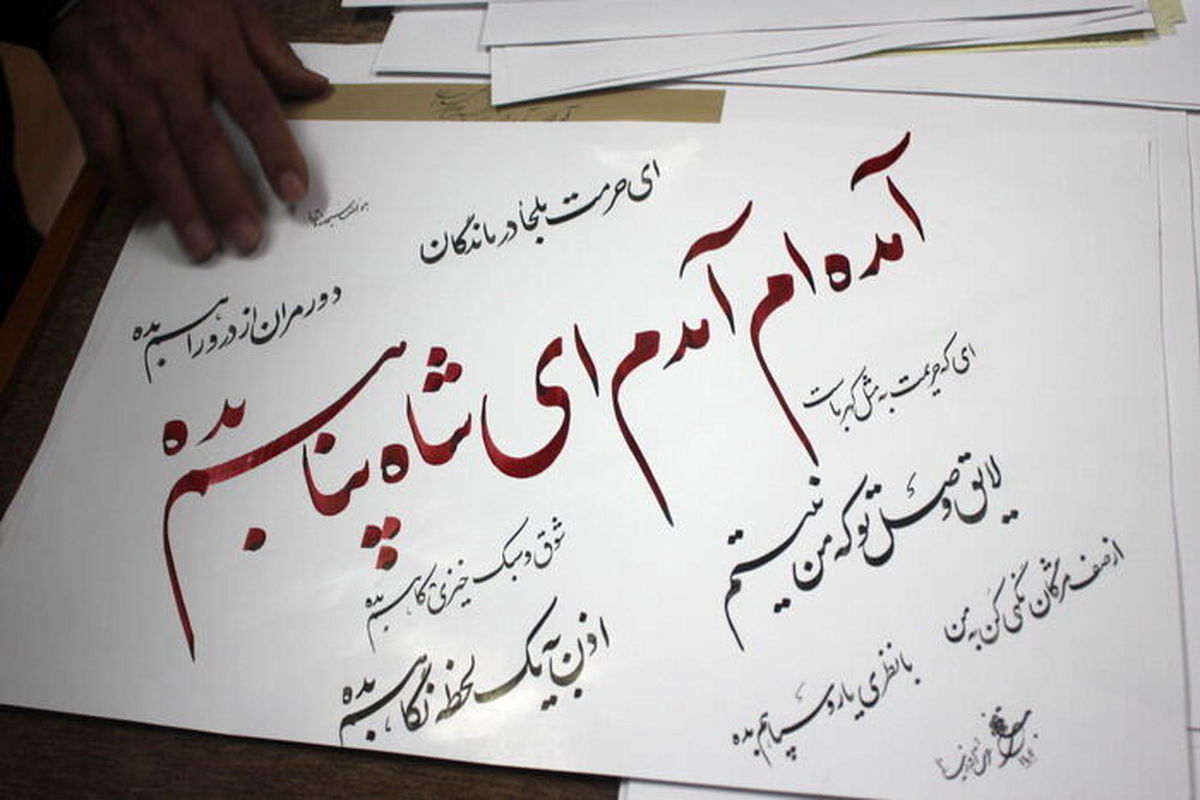 ای حرمت ملجأ درماندگان
دور مران از در و راهم بده
آمده‌ام آمدم ای شاه پناهم بده
ای که حریمت به مثل کهرباست
شوق و سبک خیزی کاهم بده
لایق وصل تو که من نیستم
اذن به یک لحظه نگاهم بده
از صف مژگان نگهی کن به من
با نظری یار و سپاهم بده